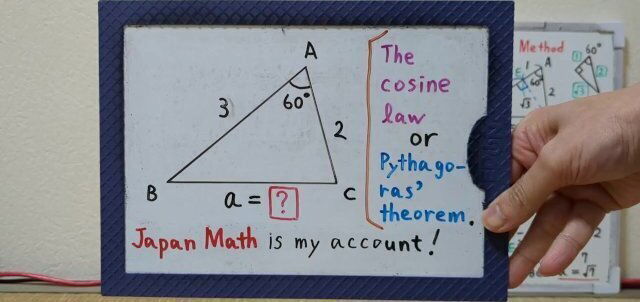 A
60°
3
2
B
C
a = ?
The
cosine
law
or
Pythago-
ras'
theorem.
Japan Math is my account!
Method
60°
1
2
√3
A
60°
2
√3
7
= √7